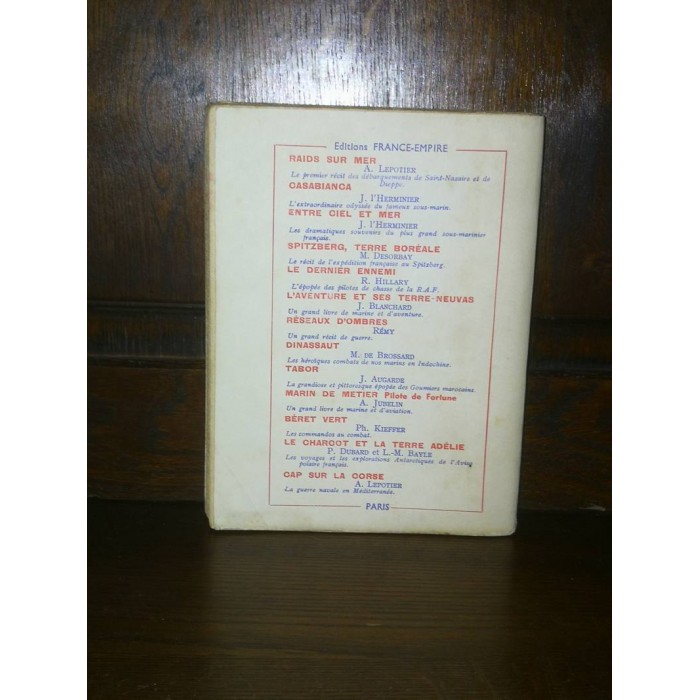 Editions FRANCE-EMPIRE
RAIDS SUR MER
A. LEPOTIER
Le premier récit des débarquements de Saint-Nazaire et de
Dieppe.
CASABIANCA
J. l'HERMINIER
L'extraordinaire odyssée du fameux sous-marin.
ENTRE CIEL ET MER
J. l'HERMINIER
Les dramatiques souvenirs du plus grand sous-marinier
français.
SPITZBERG, TERRE BORÉALE
M. DESORBAY
Le récit de l'expédition française au Spitzberg.
LE DERNIER ENNEMI
R. HILLARY
L'épopée des pilotes de chasse de la R.A.F.
L'AVENTURE ET SES TERRE-NEUVAS
J. BLANCHARD
Un grand livre de marine et d'aventure.
RÉSEAUX D'OMBRES
RÉMY
Un grand récit de guerre.
DINASSAUT
M. DE BROSSARD
Les héroïques combats de nos marins en Indochine.
TABOR
J. AUGARDE
La grandiose et pittoresque épopée des Goumiers marocains.
MARIN DE METIER Pilote de Fortune
A. JUBELIN
Un grand livre de marine et d'aviation.
BÉRET VERT
Ph. KIEFFER
Les commandos au combat.
LE CHARCOT ET LA TERRE ADÉLIE
P. DUBARD et L.-M. BAYLE
Les voyages et les explorations Antarctiques de l'Aviso
polaire français.
CAP SUR LA CORSE
A. LEPOTIER
La guerre navale en Méditerranée.
PARIS